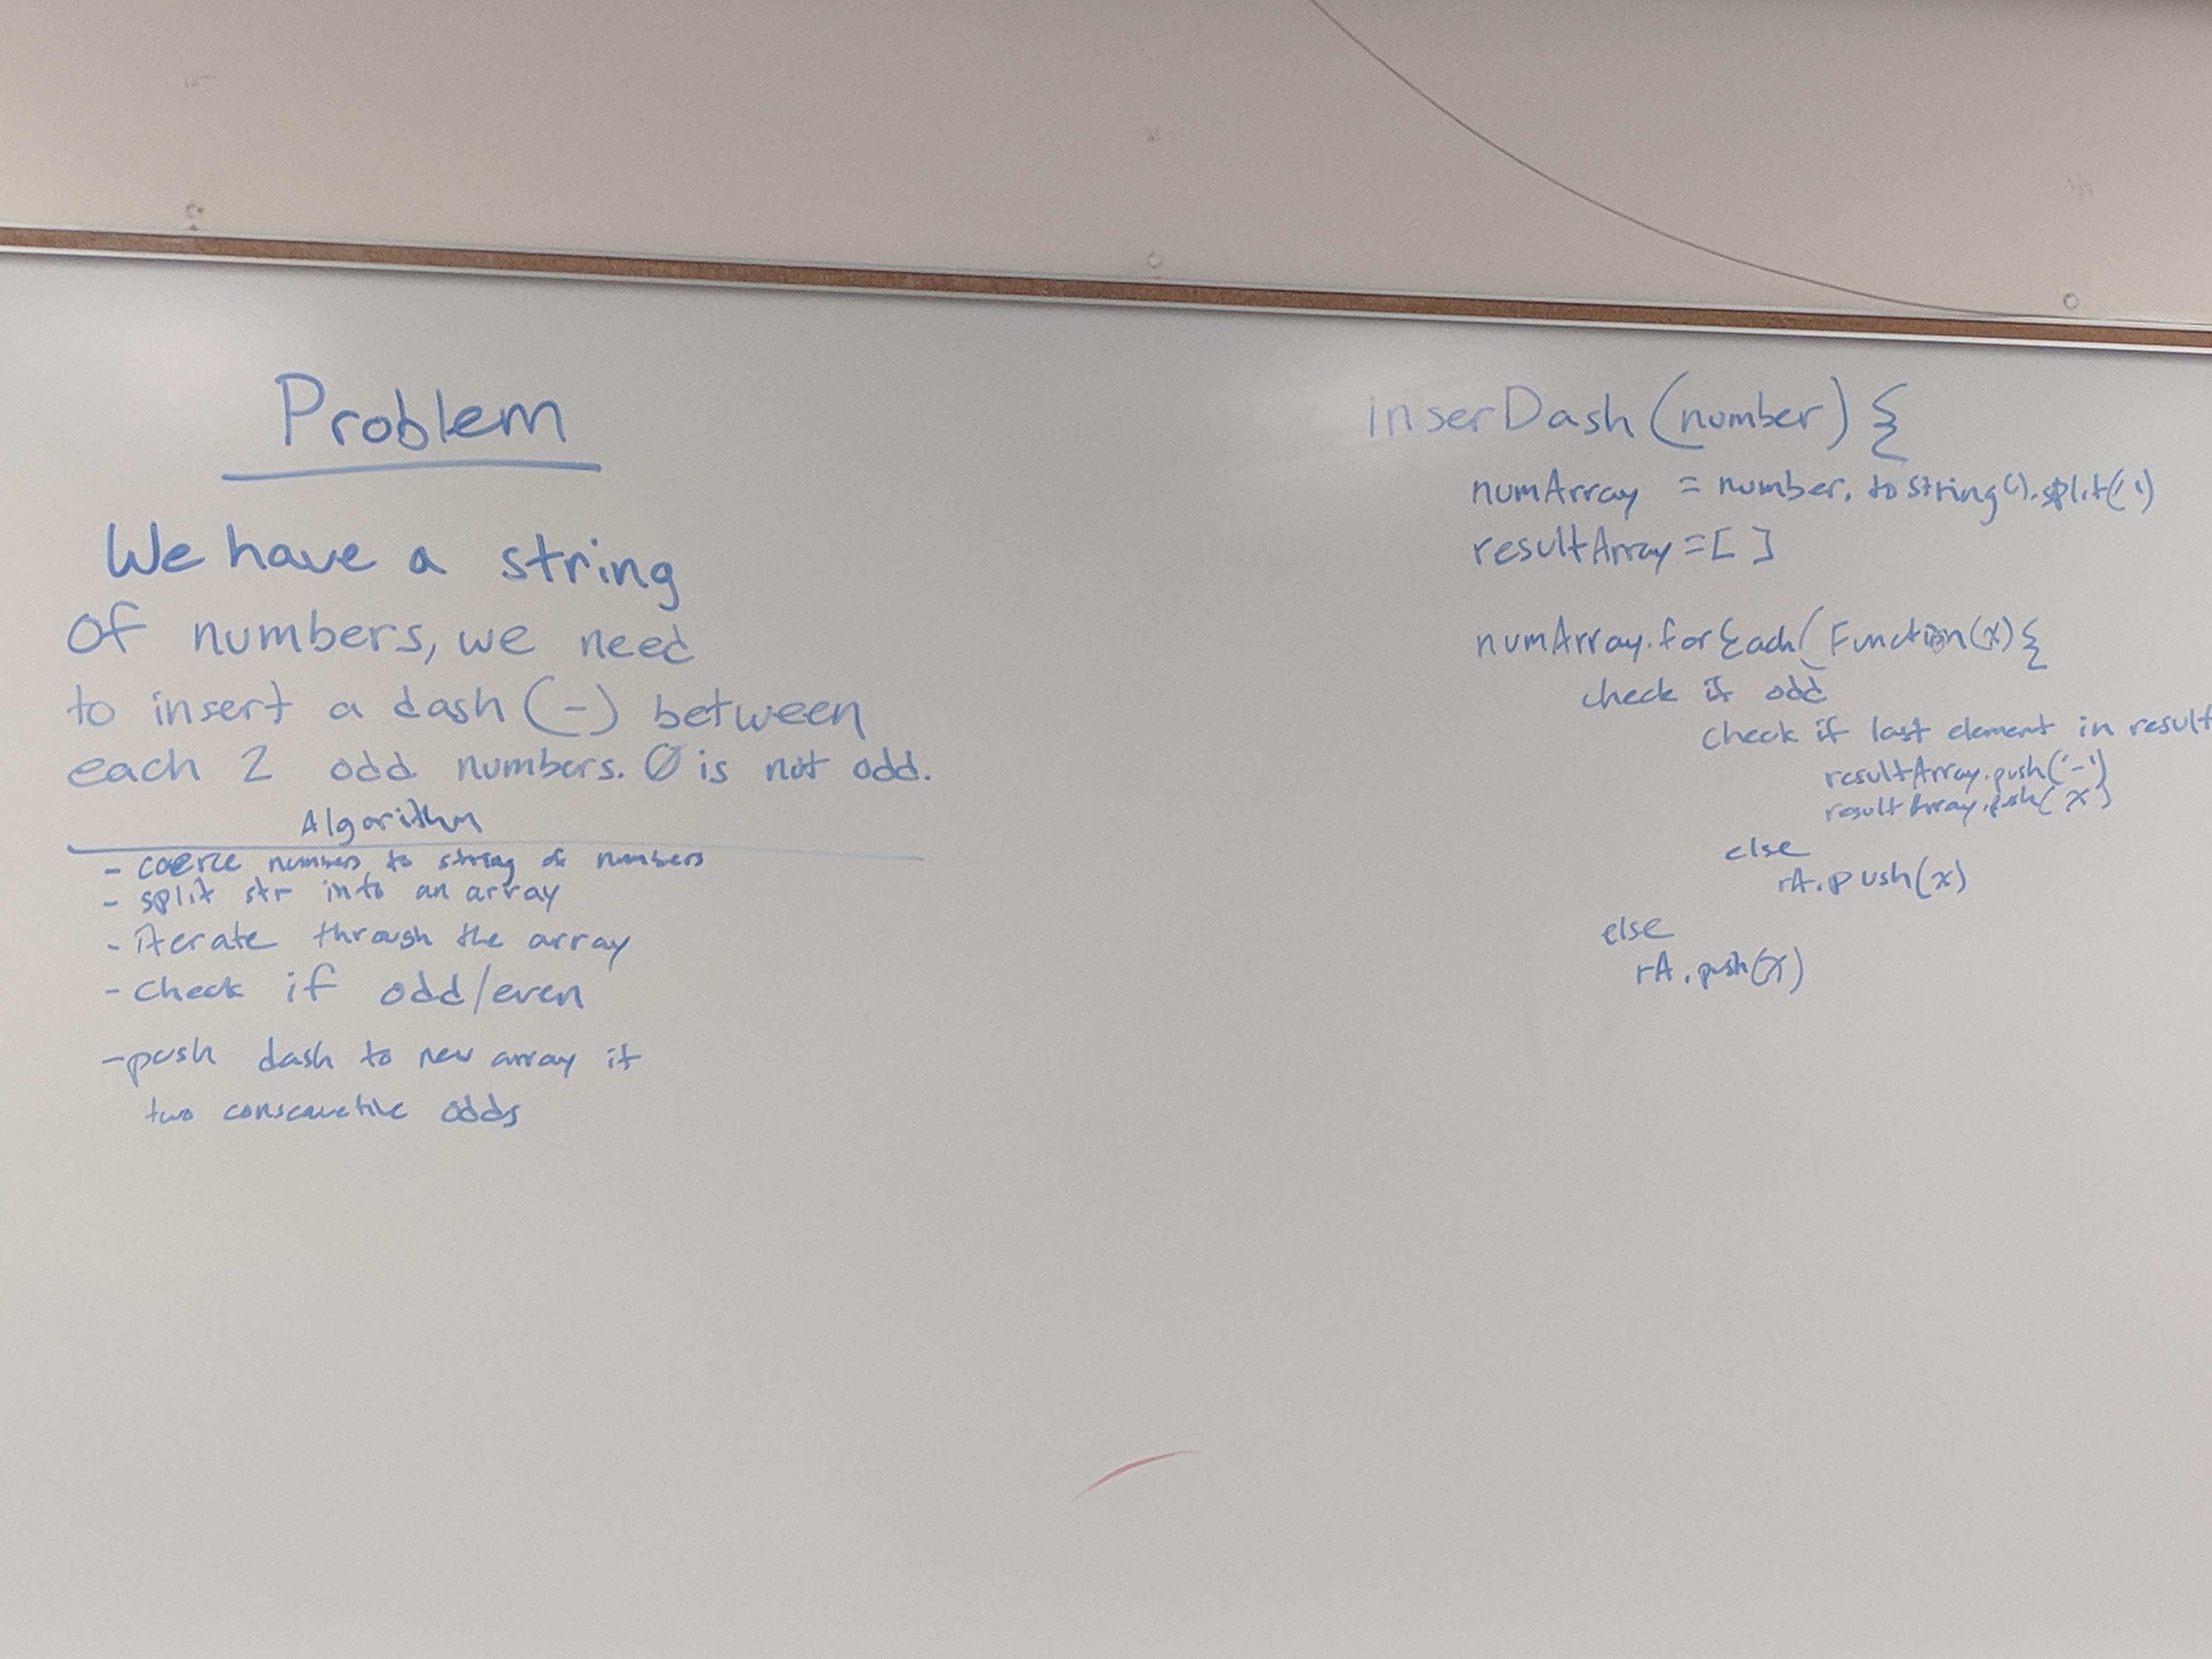 Problem
We have a string
of numbers, we need
to insert a dash (-) between
each 2 odd numbers. 0 is not odd.
Algorithm
- coerce numbers to string of numbers
- split str into an array
- iterate through the array
- check if odd/even
- push dash to new array if
two consecutive odds
inserDash (number) {
numArray = number. to string().split('')
resultArray = [ ]
numArray.forEach(Function(x) {
check if odd
check if last element in result
resultArray.push('-')
resultArray.push(x)
else
rA.push(x)
else
rA.push(x)